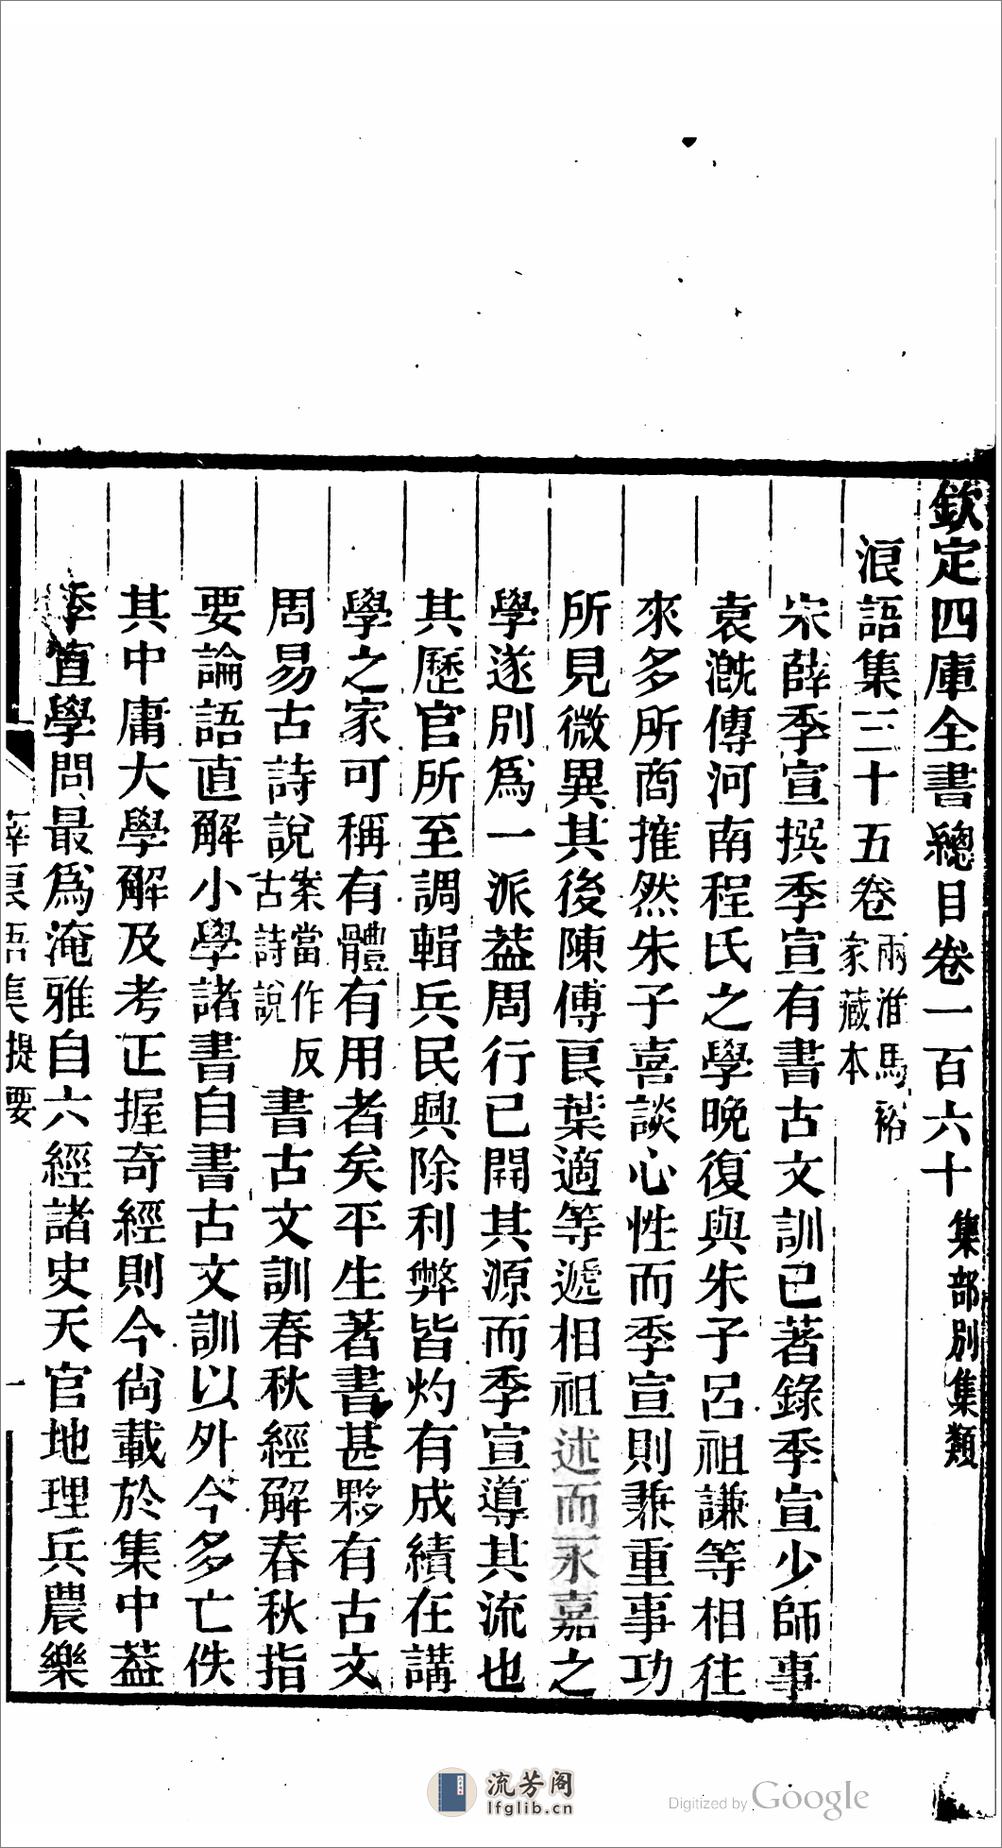 欽定四庫全書總目卷一百六十 集部別集類
浪語集三十五卷 兩淮馬裕家藏本
宋薛季宣撰季宣有書古文訓已著錄季宣少師事
袁漑傳河南程氏之學晚復與朱子呂祖謙等相往
來多所商搉然朱子喜談心性而季宣則兼重事功
所見微異其後陳傅良葉適等遞相祖述而永嘉之
學遂別爲一派葢周行己開其源而季宣導其流也
其歷官所至調輯兵民興除利弊皆灼有成績在講
學之家可稱有體有用者矣平生著書甚夥有古文
周易古詩說 案當作反古詩說 書古文訓春秋經解春秋指
要論語直解小學諸書自書古文訓以外今多亡佚
其中庸大學解及考正握奇經則今尙載於集中葢
季宣學問最爲淹雅自六經諸史天官地理兵農樂
薛浪語集提要
一
流芳阁
lfglib.cn
Digitized by Google